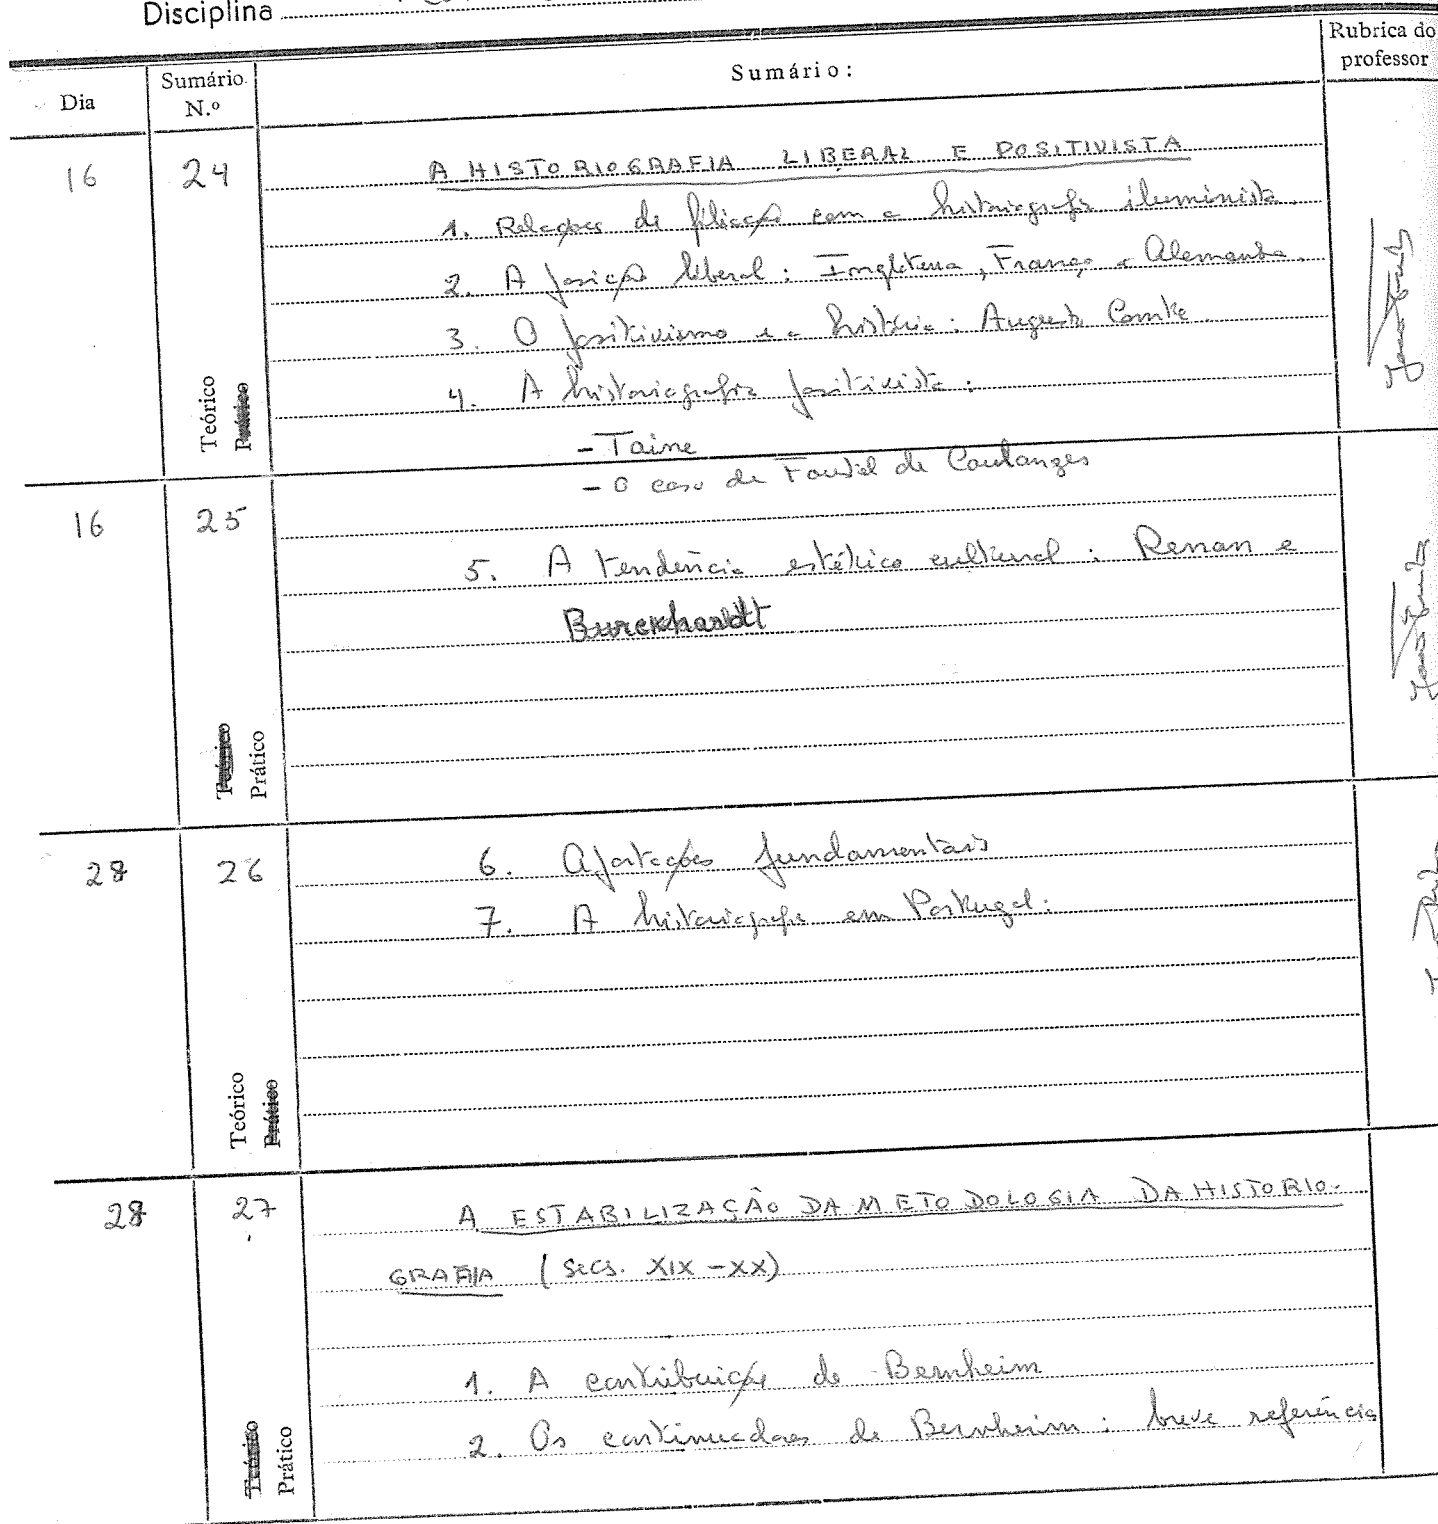 Disciplina
Dia
Sumário N.º
Sumário:
Rubrica do professor
16
24
A HISTORIOGRAFIA LIBERAL E POSITIVISTA
1. Relações de filiação com a historiografia iluminista.
2. A posição liberal: Inglaterra, França e Alemanha.
3. O positivismo e a história: Augusto Comte.
4. A historiografia positivista:
- Taine
- O caso de Foustel de Coulanges
Teórico
Prático
16
25
5. A tendência estético cultural: Renan e
Burckhardt
Teórico
Prático
28
26
6. Aportações fundamentais
7. A historiografia em Portugal:
Teórico
Prático
28
27
A ESTABILIZAÇÃO DA METODOLOGIA DA HISTORIO-
GRAFIA (secs. XIX-XX)
1. A contribuição de Bernheim
2. Os continuadores de Bernheim: breve referência
Teórico
Prático